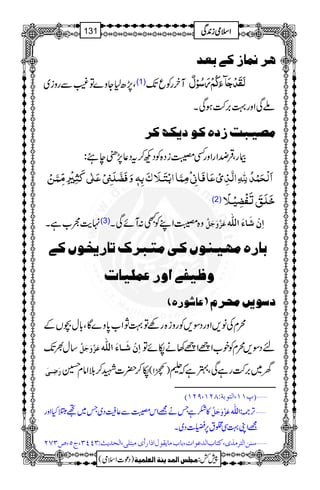 131 اسلامی زندگی
ہر نماز کے بعد
لَقَدْ جَآءَكُمْ رَسُوْلٌ آخر رکوع تک (1) پڑھ لیا جاوے تو غیب سے روزی
ملے گی اور بہت برکت ہوگی۔
مصیبت زدہ کو دیکھ کر
بیمار، قرضدار اور کسی مصیبت زدہ کو دیکھ کر یہ دعا پڑھنی چاہئے:
اَلْحَمْدُ لِلّٰهِ الَّذِیْ عَافَانِیْ مِمَّا ابْتَلَاكَ بِهٖ وَ فَضَّلَنِیْ عَلٰى كَثِیْرٍ مِّمَّنْ
خَلَقَ تَفْضِیْلًا (2)
اِنْ شَآءَ اللّٰه عَزَّوَجَلَّ وہ مصیبت اپنے کو کبھی نہ آئے گی۔ (3) نہایت مجرب ہے۔
بارہ مہینوں کی متبرک تاریخوں کے
وظیفے اور عملیات
دسویں محرم (عاشورہ)
محرم کی نویں اور دسویں کو روزہ رکھے تو بہت ثواب پاوے گا، بال بچوں کے
لئے دسویں محرم کو خوب اچھے اچھے کھانے پکائے تو اِنْ شَآءَ اللّٰه عَزَّوَجَلَّ سال بھر تک
گھر میں برکت رہے گی، بہتر ہے کہ حلیم (کھچڑا) پکا کر حضرت شہید کربلا امام حسین رَضِیَ
(پ۱۱، التوبۃ:۱۲۸، ۱۲۹)
ترجمہ: اللّٰہ عَزَّوَجَلَّ کا شکر ہے جس نے مجھے اس مصیبت سے عافیت دی جس میں تجھے مبتلا کیا اور
مجھے اپنی بہت سی مخلوق پر فضیلت دی۔
سنن الترمذی، کتاب الدعوات، باب مایقول اذا رأی مبتلی، الحدیث:۳۴۴۳، ج۵، ص۲۷۳
پیش کش: مجلس المدینۃ العلمیۃ (دعوت اسلامی)